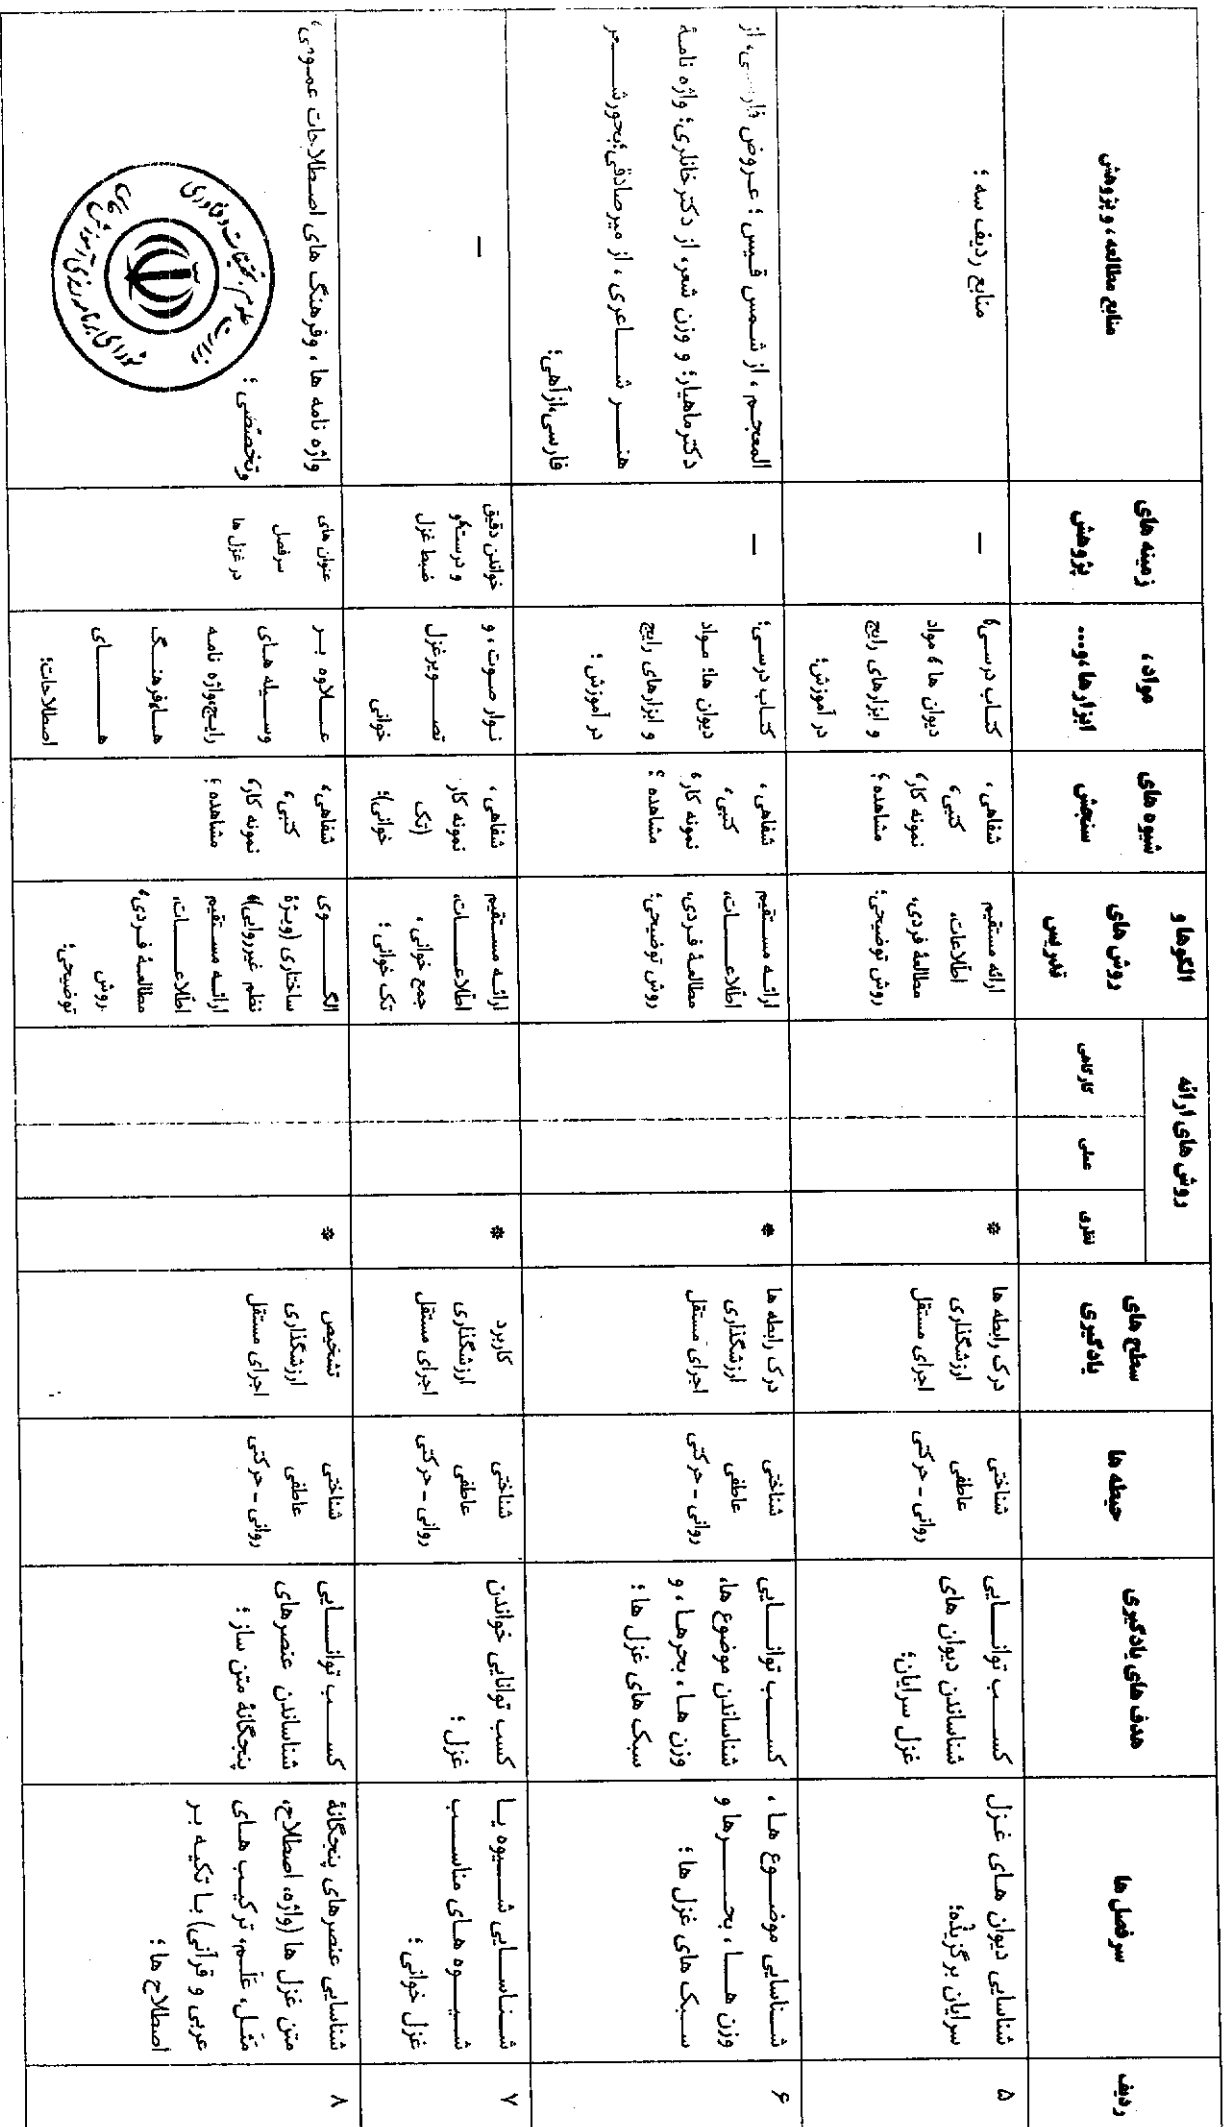 ردیف
سرفصل ها
هدف های یادگیری
حیطه ها
سطح های
یادگیری
روش های ارائه
نظری
عملی
کارگاهی
الگوها و
روش های
تدریس
شیوه های
سنجش
مواد،
ابزارها،و...
زمینه های
پژوهش
منابع مطالعه، و پژوهش
۵
شناسایی دیوان های غزل
سرایان برگزیده؛
کسب توانایی
شناساندن دیوان های
غزل سرایان؛
شناختی
عاطفی
روانی - حرکتی
درک رابطه ها
ارزشگذاری
اجرای مستقل
*
ارائه مستقیم
اطلاعات،
مطالعۀ فردی،
روش توضیحی؛
شفاهی،
کتبی،
نمونه کار،
مشاهده؛
کتاب درسی؛
دیوان ها؛ مواد
و ابزارهای رایج
در آموزش؛
–
منابع ردیف سه؛
۶
شناسایی موضوع ها،
وزن ها، بحرها و
سبک های غزل ها؛
کسب توانایی
شناساندن موضوع ها،
وزن ها، بحرها، و
سبک های غزل ها؛
شناختی
عاطفی
روانی - حرکتی
درک رابطه ها
ارزشگذاری
اجرای مستقل
*
ارائه مستقیم
اطلاعات،
مطالعۀ فردی،
روش توضیحی؛
شفاهی،
کتبی،
نمونه کار،
مشاهده؛
کتاب درسی؛
دیوان ها؛ مواد
و ابزارهای رایج
در آموزش؛
–
المعجم، از شمس قیس؛ عروض فارسی، از
دکترماهیار؛ و وزن شعر، از دکتر خانلری؛ واژه نامۀ
هنر شاعری، از میرصادقی؛بحورشعر
فارسی،ازآهی؛
۷
شناسایی شیوه یا
شیوه های مناسب
غزل خوانی؛
کسب توانایی خواندن
غزل؛
شناختی
عاطفی
روانی - حرکتی
کاربرد
ارزشگذاری
اجرای مستقل
*
ارائه مستقیم
اطلاعات،
جمع خوانی،
تک خوانی؛
شفاهی،
نمونه کار
(تک
خوانی)؛
نوار صوت، و
تصویرغزل
خوانی
خواندن دقیق
و درست،و
ضبط غزل
–
۸
شناسایی عنصرهای پنجگانۀ
متن غزل ها (واژه، اصطلاح،
مَثَل، عَلَم، ترکیب های
عربی و قرآنی) با تکیه بر
اصطلاح ها؛
کسب توانایی
شناساندن عنصرهای
پنجگانۀ متن ساز؛
شناختی
عاطفی
روانی - حرکتی
تشخیص
ارزشگذاری
اجرای مستقل
*
الگوی
ساختاری (ویژۀ
نظم غیرروایی)،
ارائه مستقیم
اطلاعات،
مطالعۀ فردی،
روش
توضیحی؛
شفاهی،
کتبی،
نمونه کار،
مشاهده؛
علاوه بر
وسیله های
رایج،واژه نامه
ها،فرهنگ
های
اصطلاحات؛
عنوان های
سرفصل
در غزل ها
واژه نامه ها، وفرهنگ های اصطلاحات عمومی،
وتخصصی؛
وزارت علوم، تحقیقات و فناوری
شورای برنامه ریزی آموزش عالی